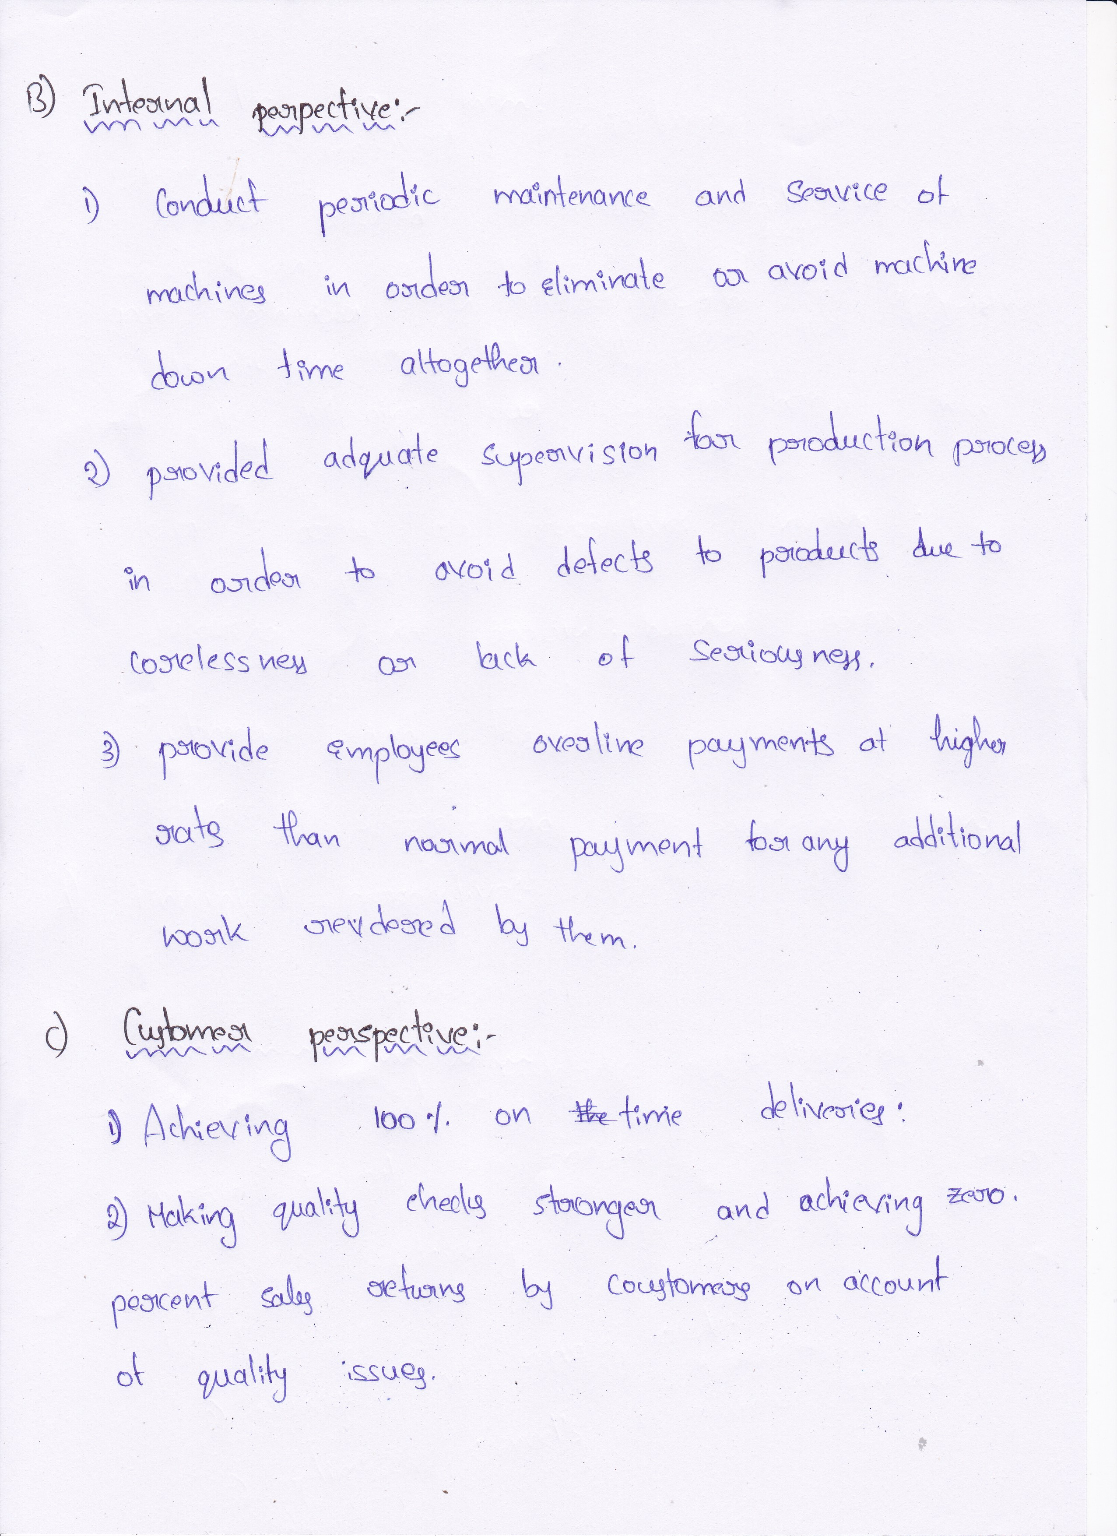 B) Internal perpective:-
1) Conduct periodic maintenance and Service of
machines in order to eliminate or avoid machine
down time altogether.
2) provided adquate supervision for production process
in order to avoid defects to products due to
carelessness or lack of seriousness.
3) provide employees overline payments at higher
rats than normal payment for any additional
work revdered by them.
C) Customer perspective:-
1) Achieving 100% on the time deliveries:
2) Making quality checks stronger and achieving zero.
percent sales returns by coustomers on account
of quality issues.